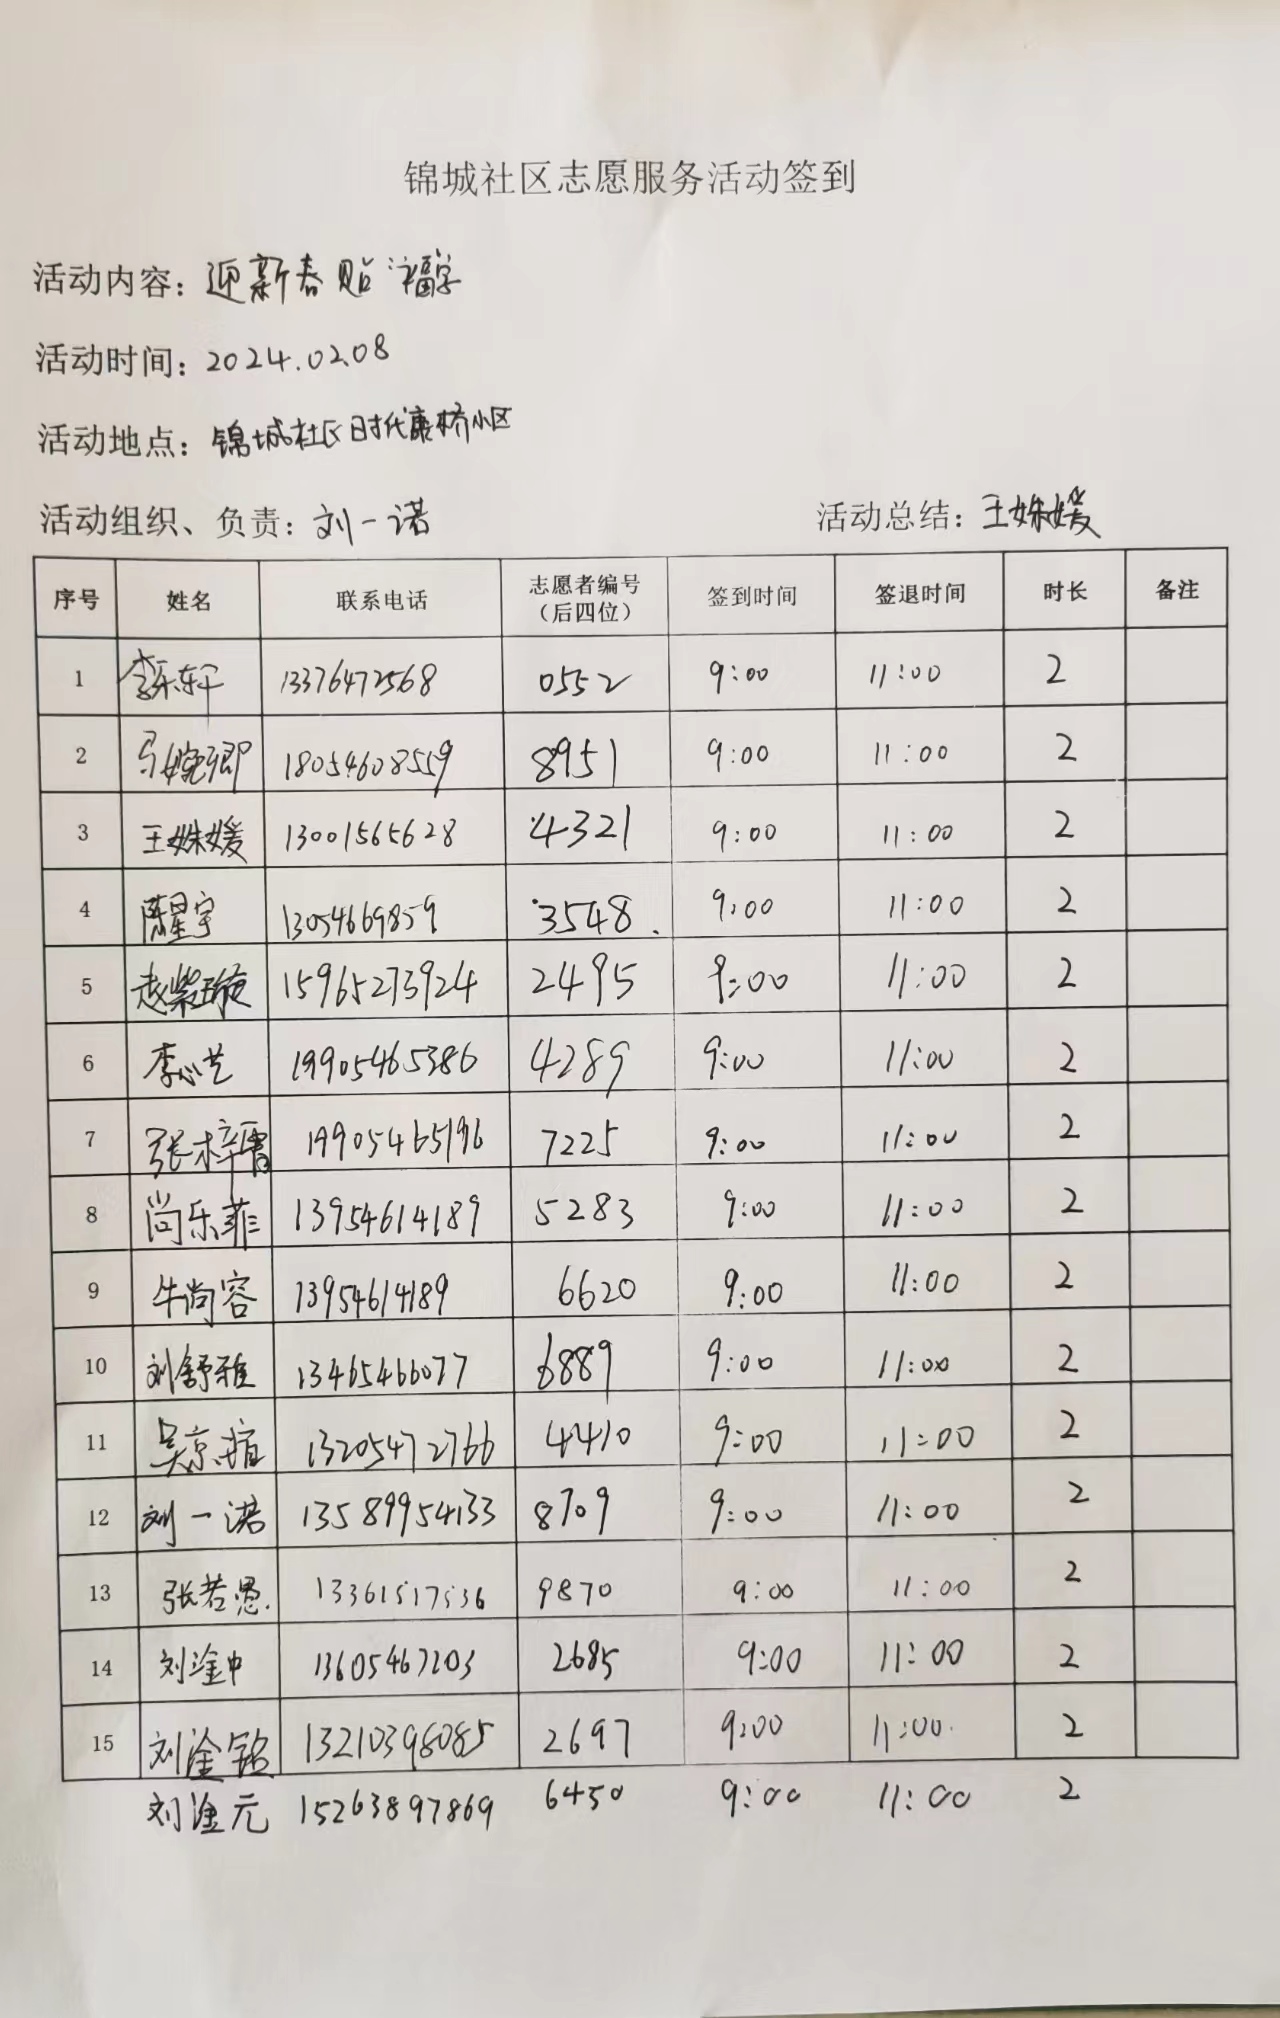 锦城社区志愿服务活动签到
活动内容：迎新春贴福字
活动时间：2024.02.08
活动地点：锦城社区时代康桥小区
活动组织、负责：刘一诺 活动总结：王姝媛
序号 姓名 联系电话 志愿者编号（后四位） 签到时间 签退时间 时长 备注
1 李乐轩 13376472568 0552 9:00 11:00 2
2 马婉卿 18054608559 8951 9:00 11:00 2
3 王姝媛 13001565628 4321 9:00 11:00 2
4 陈星宇 13054669859 3548 9:00 11:00 2
5 赵紫璇 15965273924 2495 9:00 11:00 2
6 李心艺 19905465386 4289 9:00 11:00 2
7 张梓 19905465196 7225 9:00 11:00 2
8 尚乐菲 13954614189 5283 9:00 11:00 2
9 牛尚容 13954614189 6620 9:00 11:00 2
10 刘舒雅 13465466077 6889 9:00 11:00 2
11 吴京 13205472766 4410 9:00 11:00 2
12 刘一诺 13589954133 8709 9:00 11:00 2
13 张若愚 13361517536 9870 9:00 11:00 2
14 刘淦中 13605467203 2685 9:00 11:00 2
15 刘淦铭 13210398085 2697 9:00 11:00 2
刘淦元 15263897869 6450 9:00 11:00 2